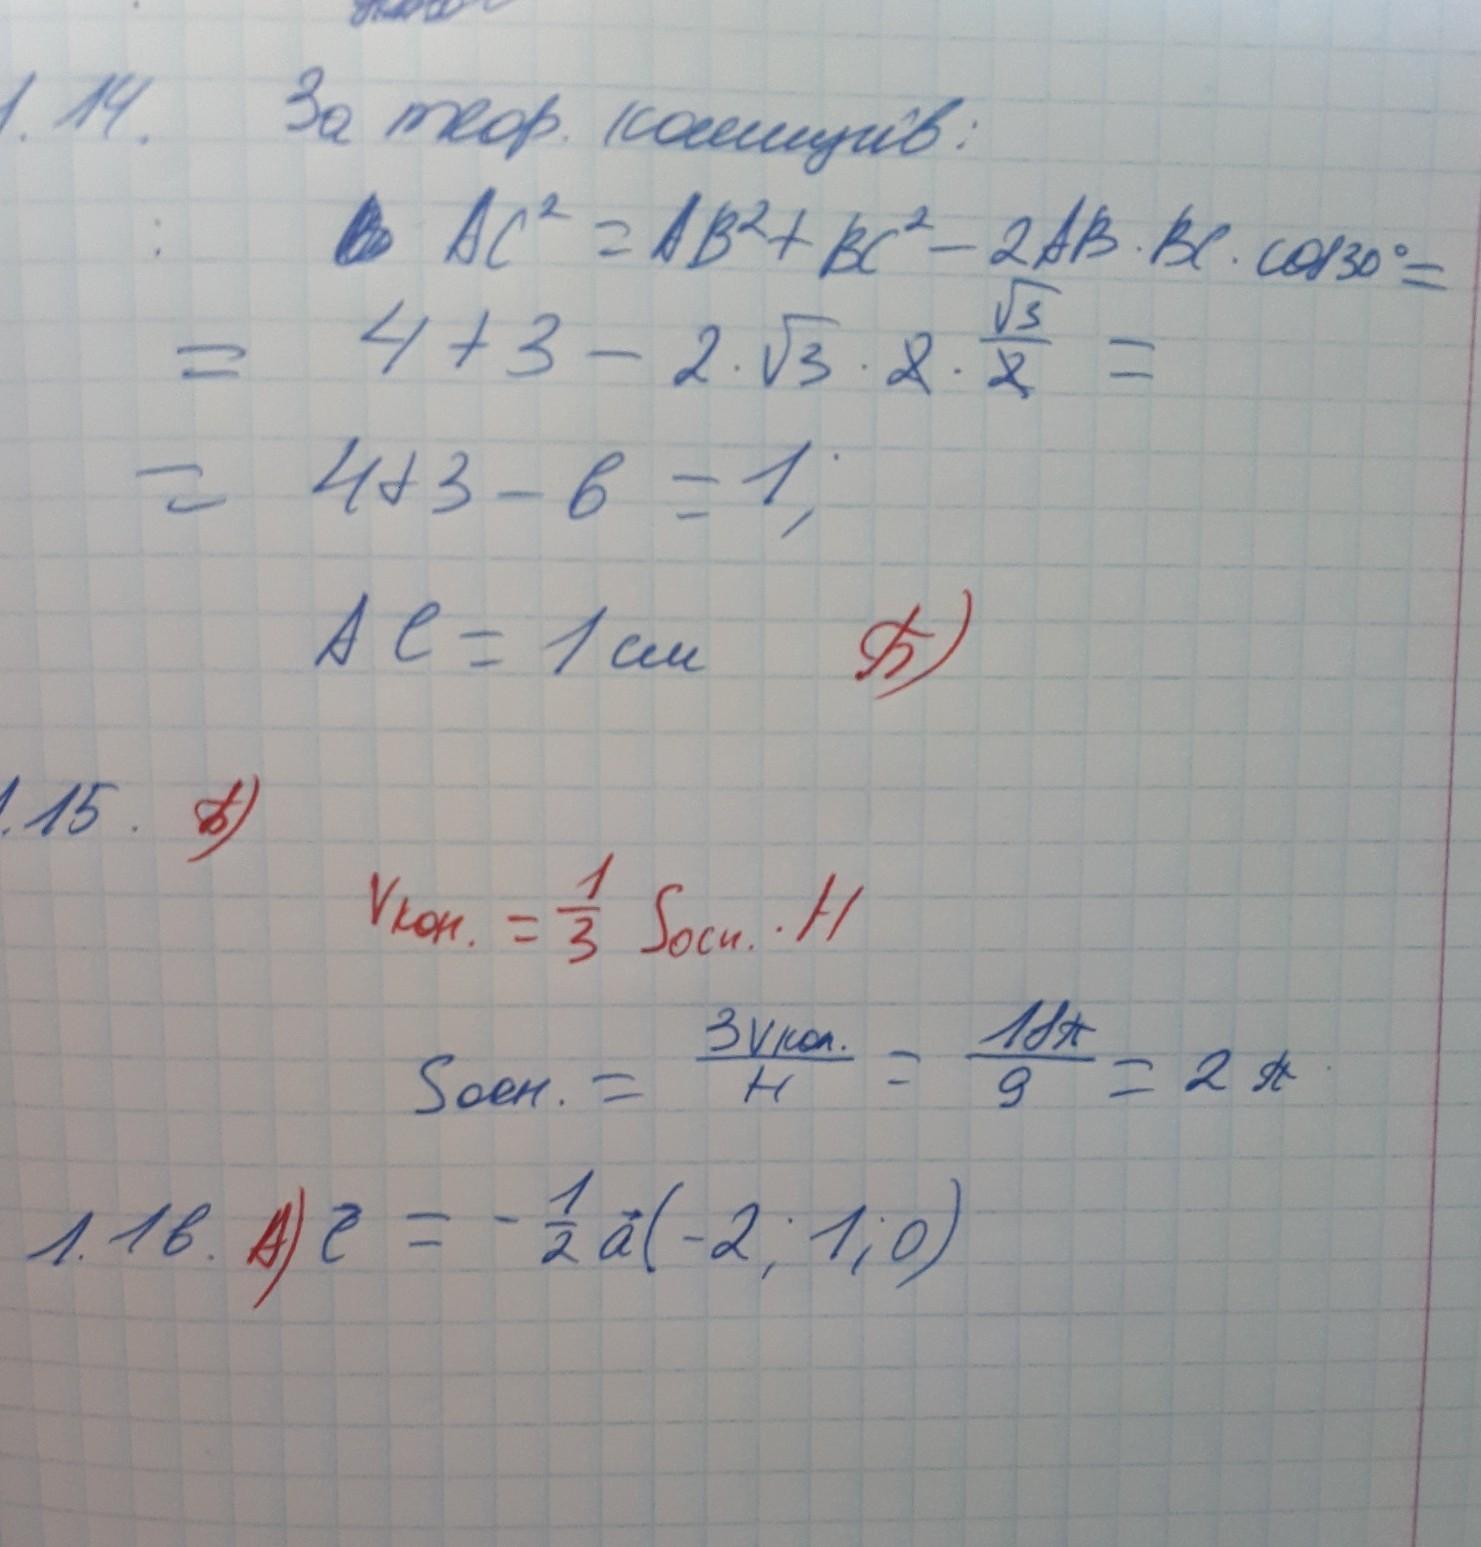 1.14. За теор. косинусів:
AC² = AB² + BC² - 2AB · BC · cos30° =
= 4 + 3 - 2 · √3 · 2 · √3/2 =
= 4+3 - 6 = 1;
AC = 1 см Б)
1.15. Б)
Vкон. = 1/3 Sосн. · H
Sосн. = 3Vкон./H = 18π/9 = 2π
1.16. А) c⃗ = -1/2 a⃗ (-2; 1; 0)